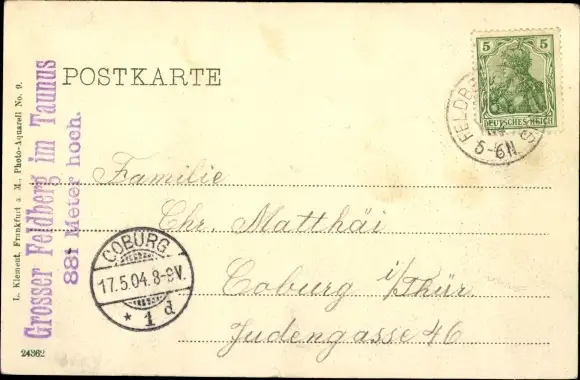 POSTKARTE
5 5
DEUTSCHES REICH
5-6N
Familie
Chr. Matthäi
Coburg i/Thür.
Judengasse 46
COBURG
17.5.04. 8-9V.
* 1 d
Grosser Feldberg im Taunus
881 Meter hoch.
L. Klement, Frankfurt a. M., Photo-Aquarell No. 9.
24362